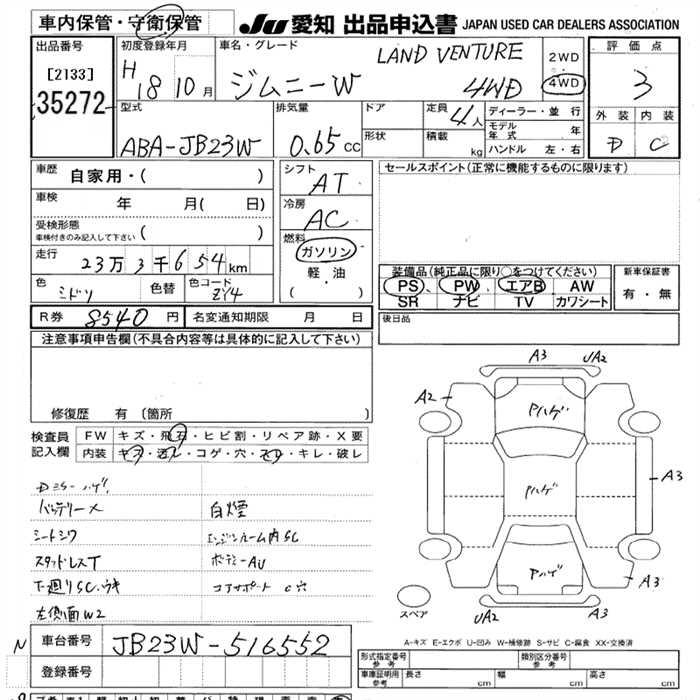 車内保管・守衛保管
JU 愛知 出品申込書 JAPAN USED CAR DEALERS ASSOCIATION
出品番号
[2133]
35272
初度登録年月
H 18 10 月
車名・グレード
ジムニーW
LAND VENTURE
4WD
2WD
4WD
評価点
3
外装 内装
D C
型式
ABA-JB23W
排気量
0.65 CC
ドア
形状
定員 4人
積載 kg
ディーラー・並行
モデル年式 年
ハンドル 左・右
車歴
自家用・( )
車検
年 月( 日)
受検形態
車検付きのみ記入して下さい ( )
走行
23万3千654km
色
ミドリ
色替
色コード
ZY4
シフト
AT
冷房
AC
燃料
ガソリン
軽・油
( )
セールスポイント(正常に機能するものに限ります)
装備品(純正品に限り○をつけてください)
PS PW エアB AW
SR ナビ TV カワシート
新車保証書
有・無
R券 8540 円
名変通知期限 月 日
後日品
注意事項申告欄(不具合内容等は具体的に記入して下さい)
修復歴 有 (箇所
検査員
記入欄
FW キズ・飛石・ヒビ割・リペア跡・X要
内装 キズ・汚レ・コゲ・穴・スレ・キレ・破レ
Dミラーハゲ
バッテリーX
白煙
シートシワ
エンジンルーム内SC
スタッドレスT
ボデーAU
下廻りSC.ウキ
コアサポート C穴
左側面W2
A3
UA2
A2
Pハゲ
Pハゲ
A3
Pハゲ
A3
スペア
UA2
A3
A-キズ E-エクボ U-凹み W-補修跡 S-サビ C-腐食 XX-交換済
N
車台番号
JB23W-516552
登録番号
形式指定番号
参考
類別区分番号
参考
車庫証明用
参考
長さ cm
幅 cm
高さ cm